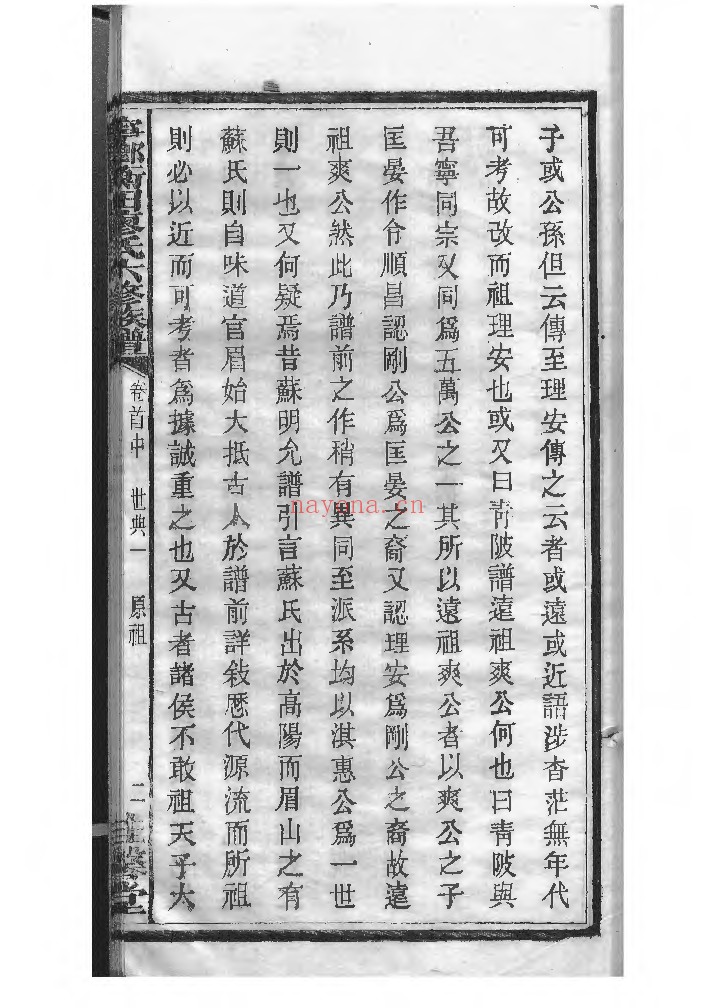 子或公孫但云傳至理安傳之云者或遠或近語涉杳茫無年代
可考故改而祖理安也或又曰青陂譜遠祖爽公何也曰青陂與
吾寧同宗又同爲五萬公之一其所以遠祖爽公者以爽公之子
匡晏作令順昌認剛公爲匡晏之裔又認理安爲剛公之裔故遠
祖爽公然此乃譜前之作稍有異同至派系均以淇惠公爲一世
則一也又何疑焉昔蘇明允譜引言蘇氏出於高陽而眉山之有
蘇氏則自味道官眉始大抵古人於譜前詳敍厯代源流而所祖
則必以近而可考者爲據誠重之也又古者諸侯不敢祖天子大
寧鄉衡田廖氏六修族譜
卷首中 世典一 原祖
二
堂
nayona.cn